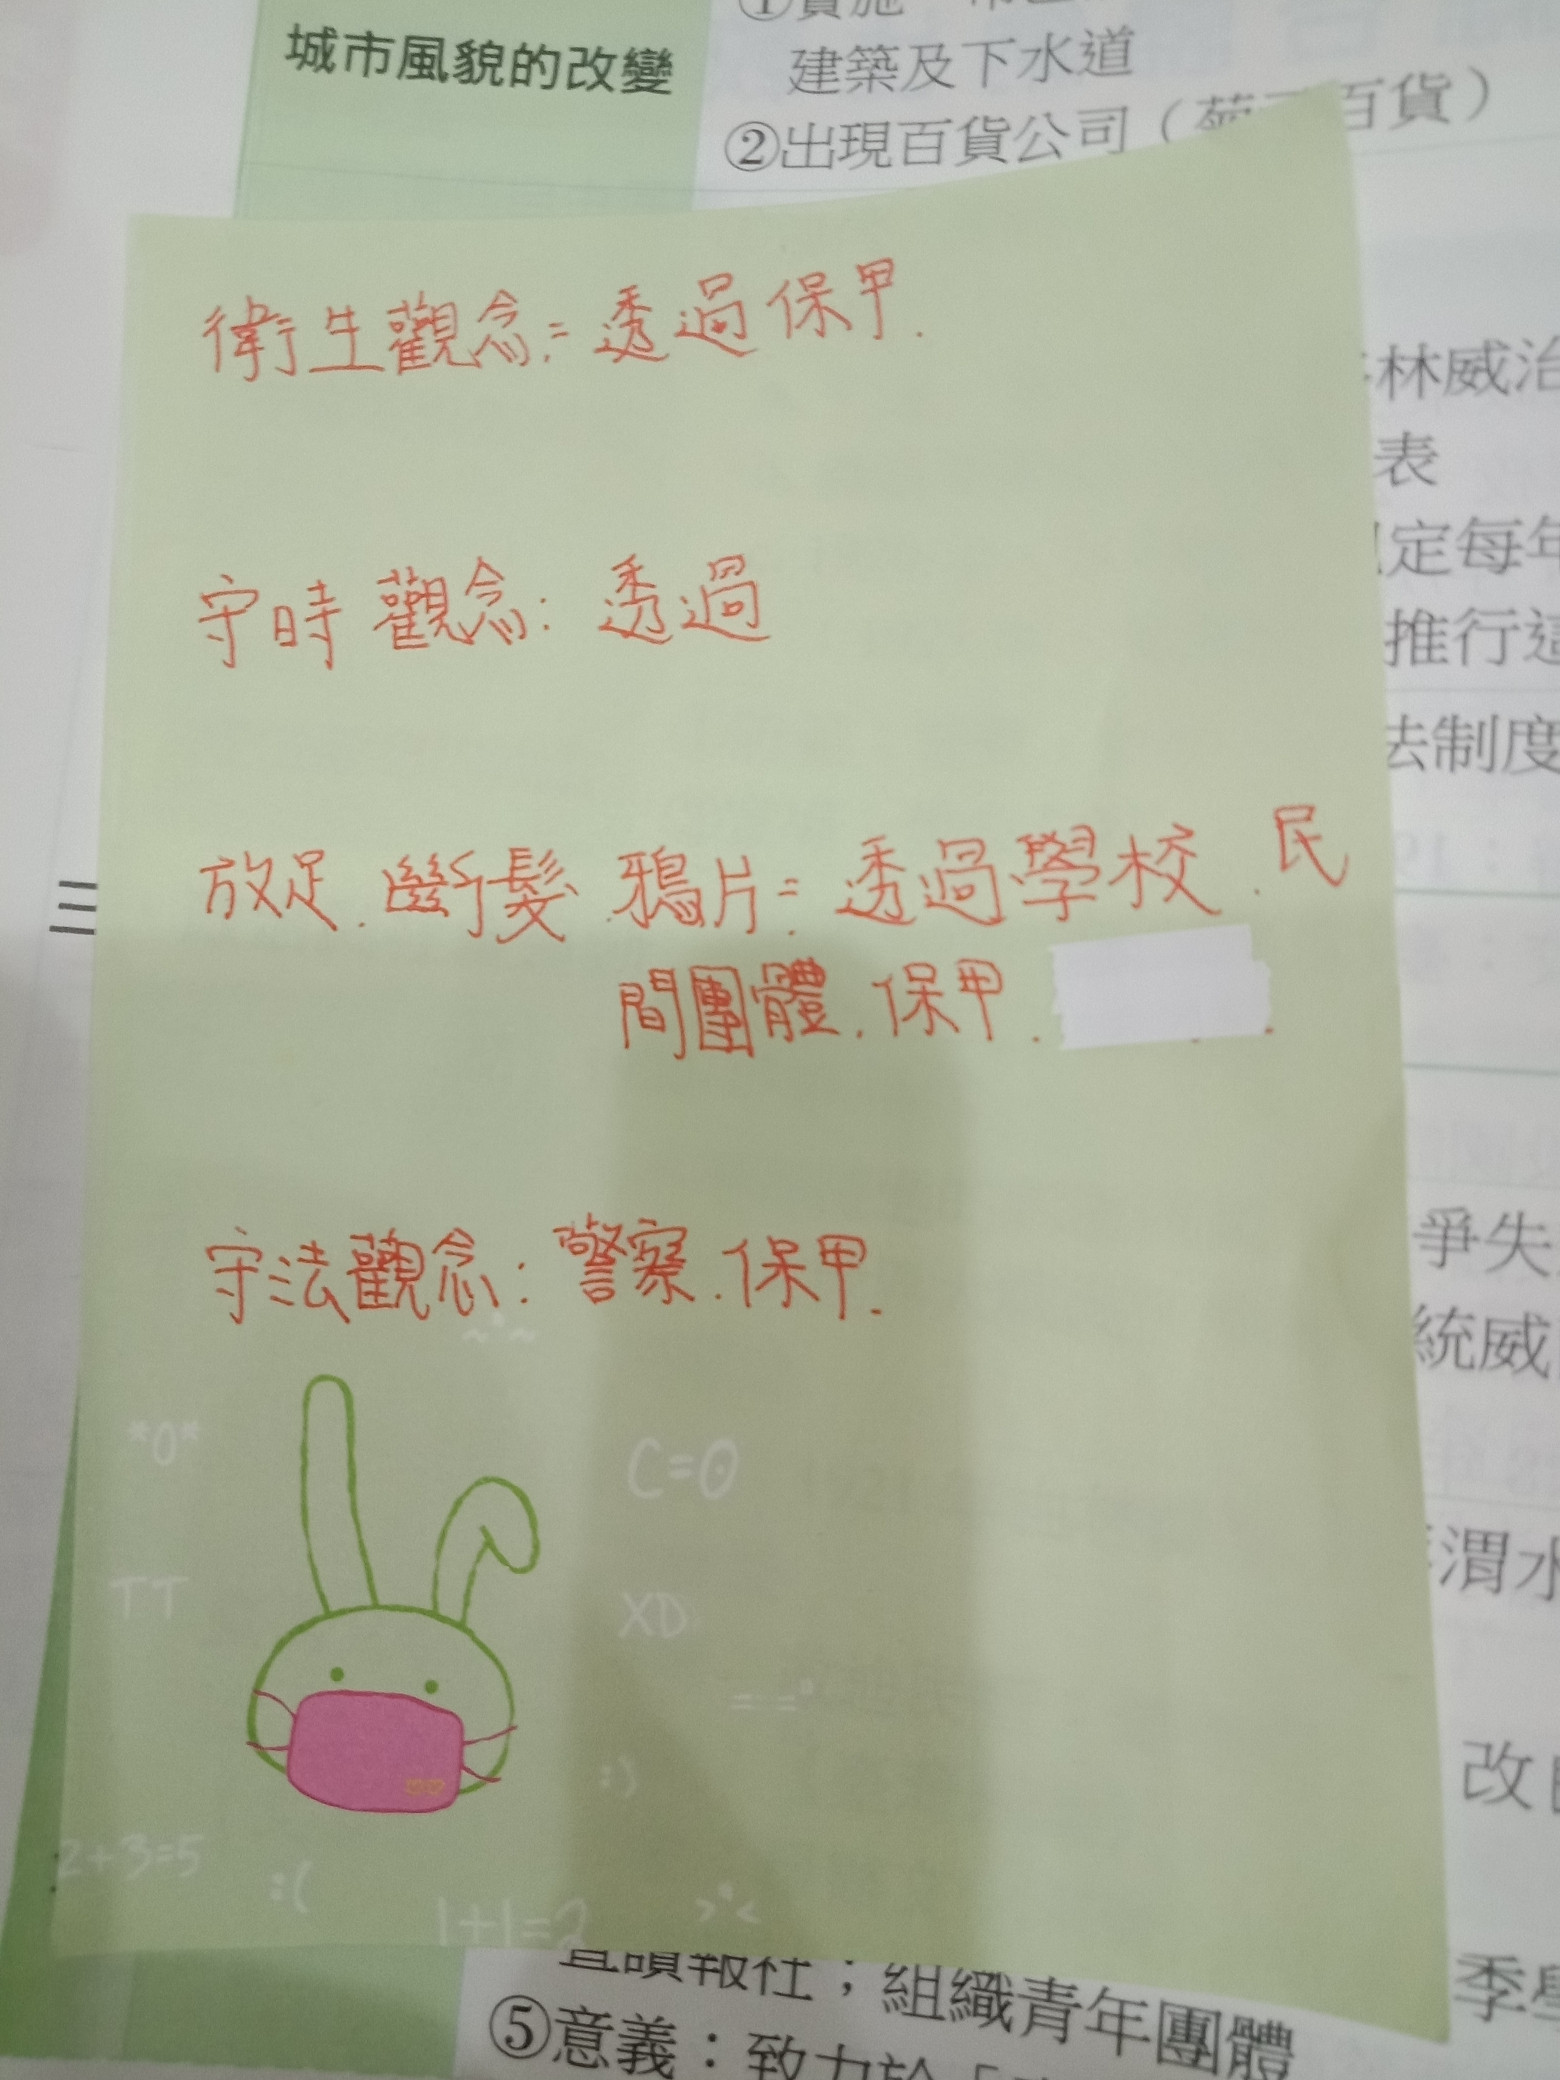 城市風貌的改變
建築及下水道
②出現百貨公司（菊
百貨）
衛生觀念：透過保甲.
林威治
表
定每年
守時觀念：透過
推行這
法制度
放足.斷髮.鴉片：透過學校.民
間團體.保甲.
三
爭失
守法觀念：警察.保甲.
統威
~°~
*0*
C=0
渭水
TT
XD
=·="
改
:)
2+3=5
:(
1+1=2
>°<
置讀報社；組織青年團體
季
⑤意義：致力於「